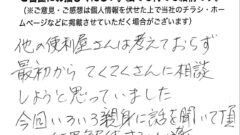 (※ご意見・ご感想は個人情報を伏せた上で当社のチラシ・ホー
ムページなどに掲載させていただく場合がございます)
他の便利屋さんは考えておらず
最初からてくてくさんに相談
しようと思っていました
今回いろいろ親身に話を聞いて頂